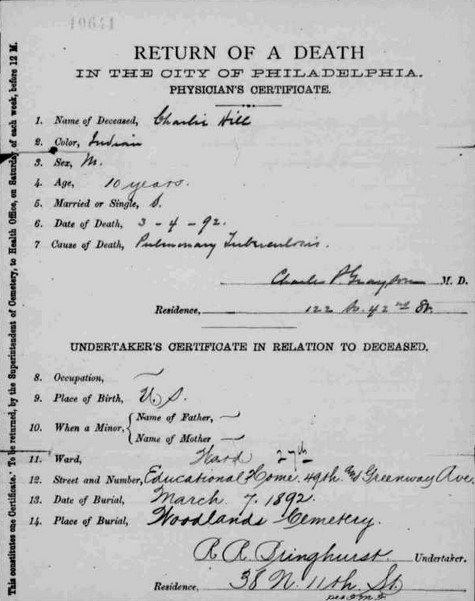 19641
RETURN OF A DEATH
IN THE CITY OF PHILADELPHIA.
PHYSICIAN'S CERTIFICATE.
1. Name of Deceased, Charlie Hill
2. Color, Indian
3. Sex, M.
4. Age, 10 years.
5. Married or Single, S.
6. Date of Death, 3-4-92.
7 Cause of Death, Pulmonary Tuberculosis.
Charles P. Grayson M. D.
Residence, 122 So. 42nd St.
UNDERTAKER'S CERTIFICATE IN RELATION TO DECEASED.
8. Occupation,
9. Place of Birth, U. S.
10. When a Minor, { Name of Father,
Name of Mother
11. Ward, Ward 27th
12. Street and Number, Educational Home 49th & Greenway Ave.
13. Date of Burial, March 7, 1892.
14. Place of Burial, Woodlands Cemetery.
R. R. Bringhurst Undertaker.
Residence, 38 N. 11th St.
This constitutes one Certificate. To be returned, by the Superintendent of Cemetery, to Health Office, on Saturday of each week, before 12 M.